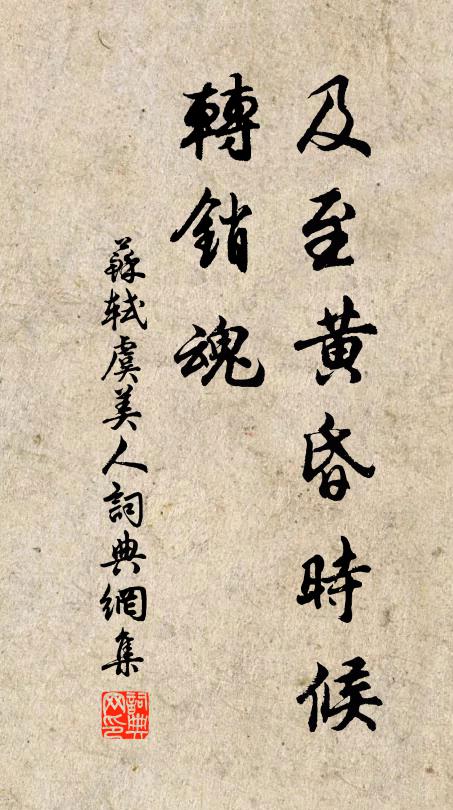 及至黄昏時候
轉銷魂
蘇軾虞美人詞典網集
詞典
网印